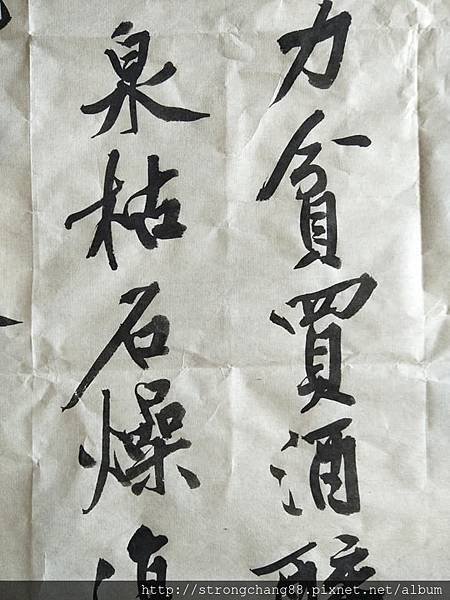 力貧買酒醉
泉枯石燥
http://strongchang88.pixnet.net/album